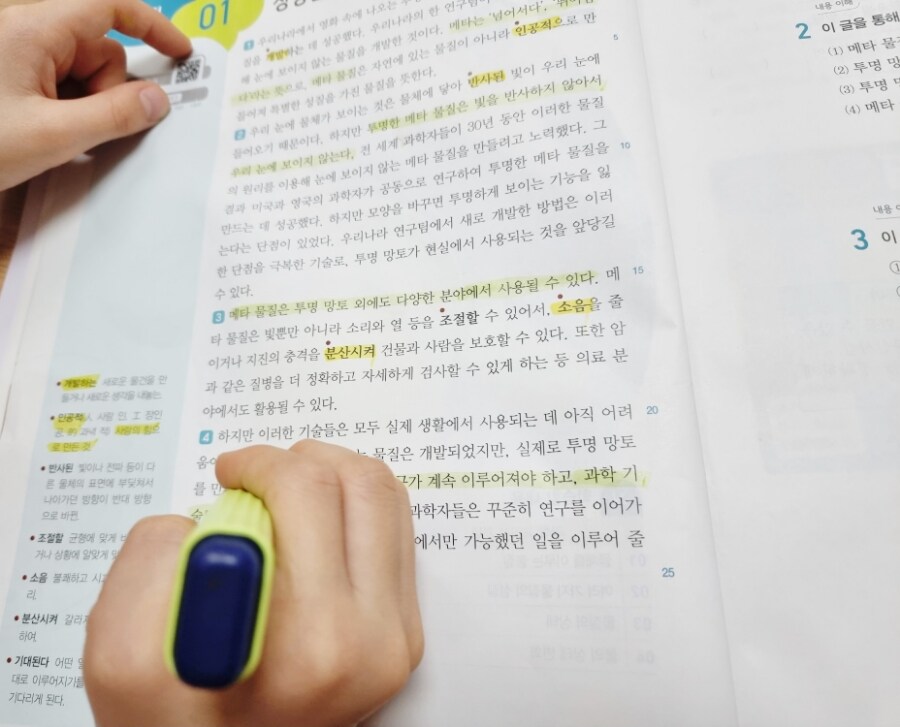 01
1 우리나라에서 영화 속에 나오는
개발하는 데 성공했다. 우리나라의 한 연구팀이
해 눈에 보이지 않는 물질을 개발한 것이다. 메타는 '넘어서다',
라는 뜻으로, 메타 물질은 자연에 있는 물질이 아니라 인공적으로 만
들어져 특별한 성질을 가진 물질을 뜻한다.
5
2 우리 눈에 물체가 보이는 것은 물체에 닿아 반사된 빛이 우리 눈에
들어오기 때문이다. 하지만 투명한 메타 물질은 빛을 반사하지 않아서
우리 눈에 보이지 않는다. 전 세계 과학자들이 30년 동안 이러한 물질
의 원리를 이용해 눈에 보이지 않는 메타 물질을 만들려고 노력했다. 그
결과 미국과 영국의 과학자가 공동으로 연구하여 투명한 메타 물질을
10
만드는 데 성공했다. 하지만 모양을 바꾸면 투명하게 보이는 기능을 잃
는다는 단점이 있었다. 우리나라 연구팀에서 새로 개발한 방법은 이러
한 단점을 극복한 기술로, 투명 망토가 현실에서 사용되는 것을 앞당길
수 있다.
3 메타 물질은 투명 망토 외에도 다양한 분야에서 사용될 수 있다. 메
15
타 물질은 빛뿐만 아니라 소리와 열 등을 조절할 수 있어서, 소음을 줄
이거나 지진의 충격을 분산시켜 건물과 사람을 보호할 수 있다. 또한 암
과 같은 질병을 더 정확하고 자세하게 검사할 수 있게 하는 등 의료 분
야에서도 활용될 수 있다.
4 하지만 이러한 기술들은 모두 실제 생활에서 사용되는 데 아직 어려
20
물질은 개발되었지만, 실제로 투명 망토
를 만
가 계속 이루어져야 하고, 과학 기
과학자들은 꾸준히 연구를 이어가
에서만 가능했던 일을 이루어 줄
25
• 개발하는 새로운 물건을 만
들거나 새로운 생각을 내놓는.
• 인공적
사람의 힘으
로 만든 것
• 반사된 빛이나 전파 등이 다
른 물체의 표면에 부딪쳐서
나아가던 방향이 반대 방향
으로 바뀐.
• 조절할 균형에 맞게
거나 상황에 알맞게
• 소음 불쾌하고
리.
• 분산시켜
하여.
• 기대된다 어떤 일
대로 이루어지기를
기다리게 된다.
내용 이해
2 이 글을 통해
(1) 메타 물
(2) 투명 망
(3) 투명
(4) 메타
내용
3 이